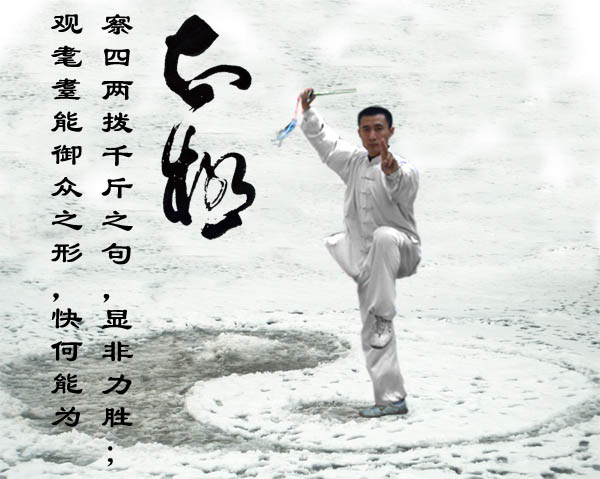 太极
察四两拨千斤之句,显非力胜;
观耄耋能御众之形,快何能为